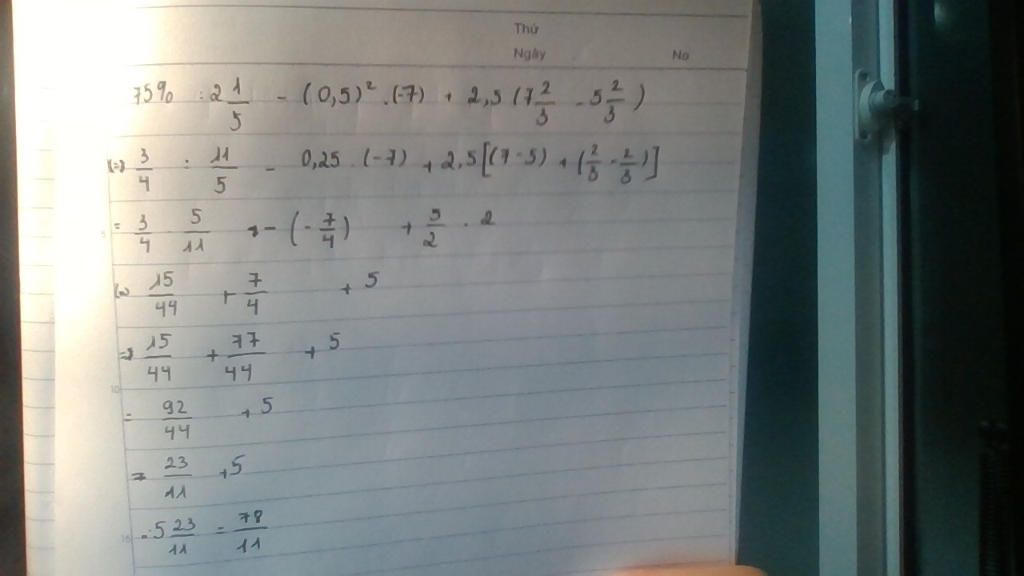 Thứ
Ngày No
75% : 2 1/5 - (0,5)² . (-7) + 2,5 (7 2/3 - 5 2/3)
(=) 3/4 : 11/5 - 0,25 . (-7) + 2,5 [(7 - 5) + (2/3 - 2/3)]
= 3/4 . 5/11 - (-7/4) + 5/2 . 2
(=) 15/44 + 7/4 + 5
=> 15/44 + 77/44 + 5
= 92/44 + 5
= 23/11 + 5
= 5 23/11 = 78/11